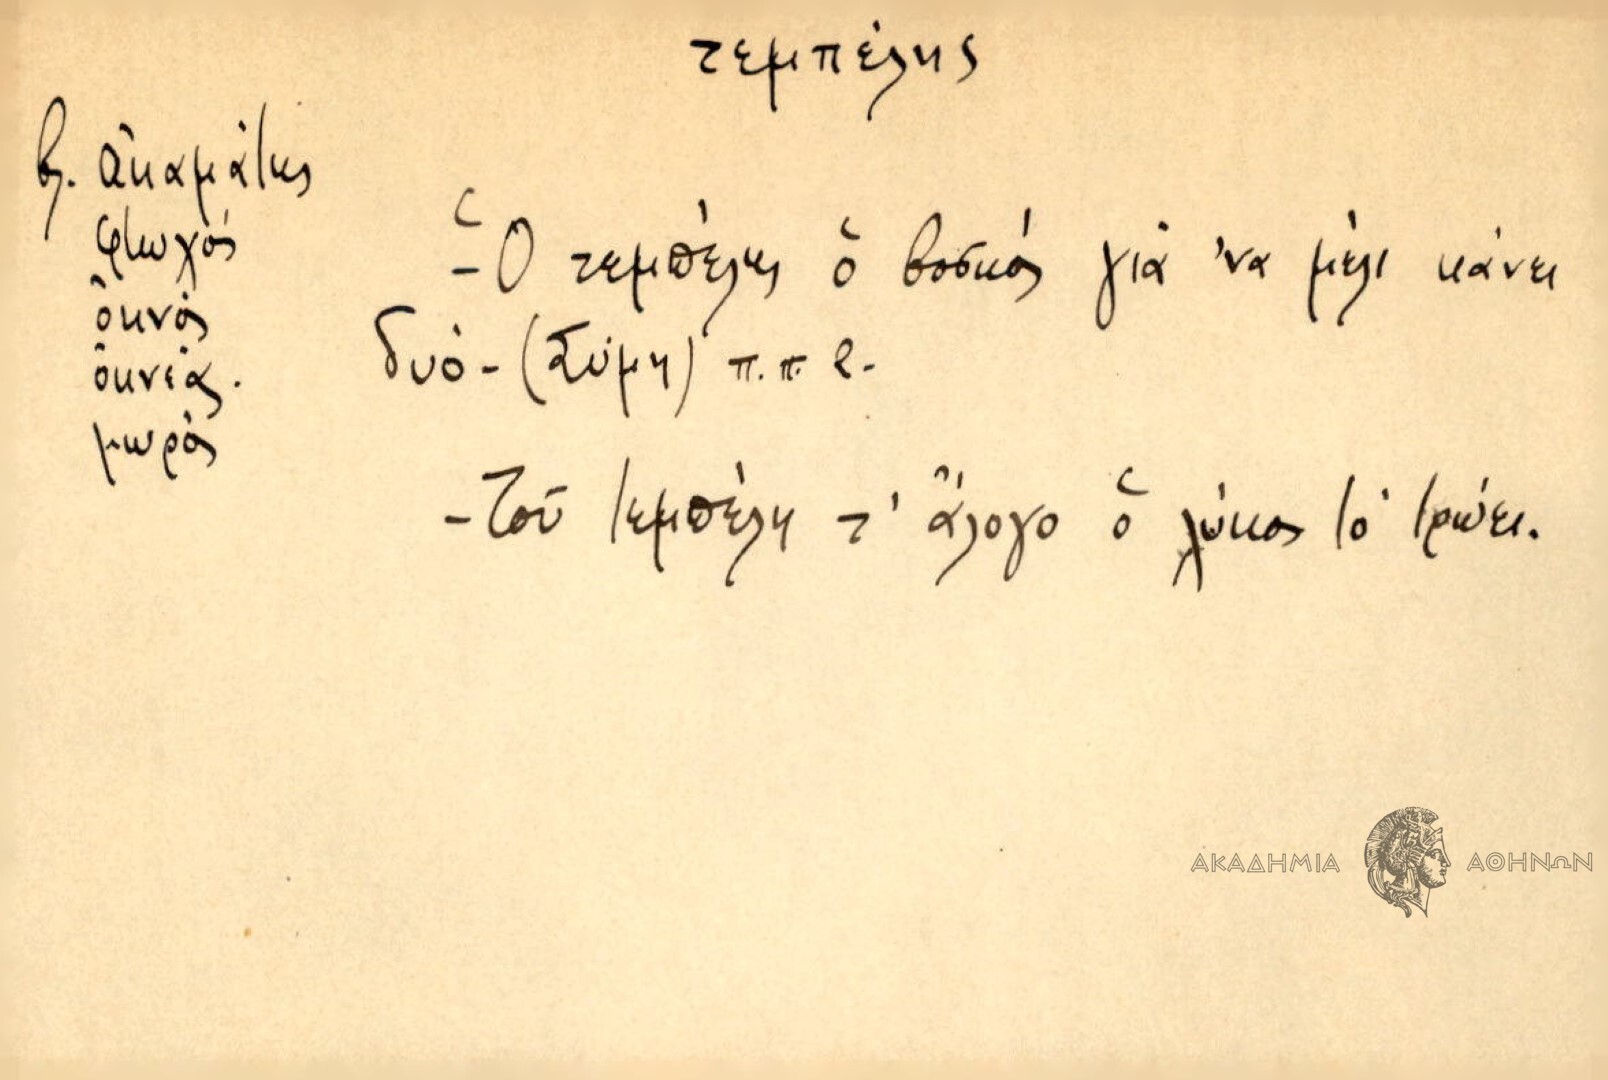 τεμπέλης
βλ. ἀκαμάτης
φτωχός
ὀκνός
ὀκνιάς.
μωρός
- Ὁ τεμπέλης ὁ βοσκός γιά 'να μέλι κάνει
δυό - (Σύμη) π. π. 2 -
- Τοῦ τεμπέλη τ' ἄλογο ὁ λύκος τό τρώει.
ΑΚΑΔΗΜΙΑ ΑΘΗΝΩΝ